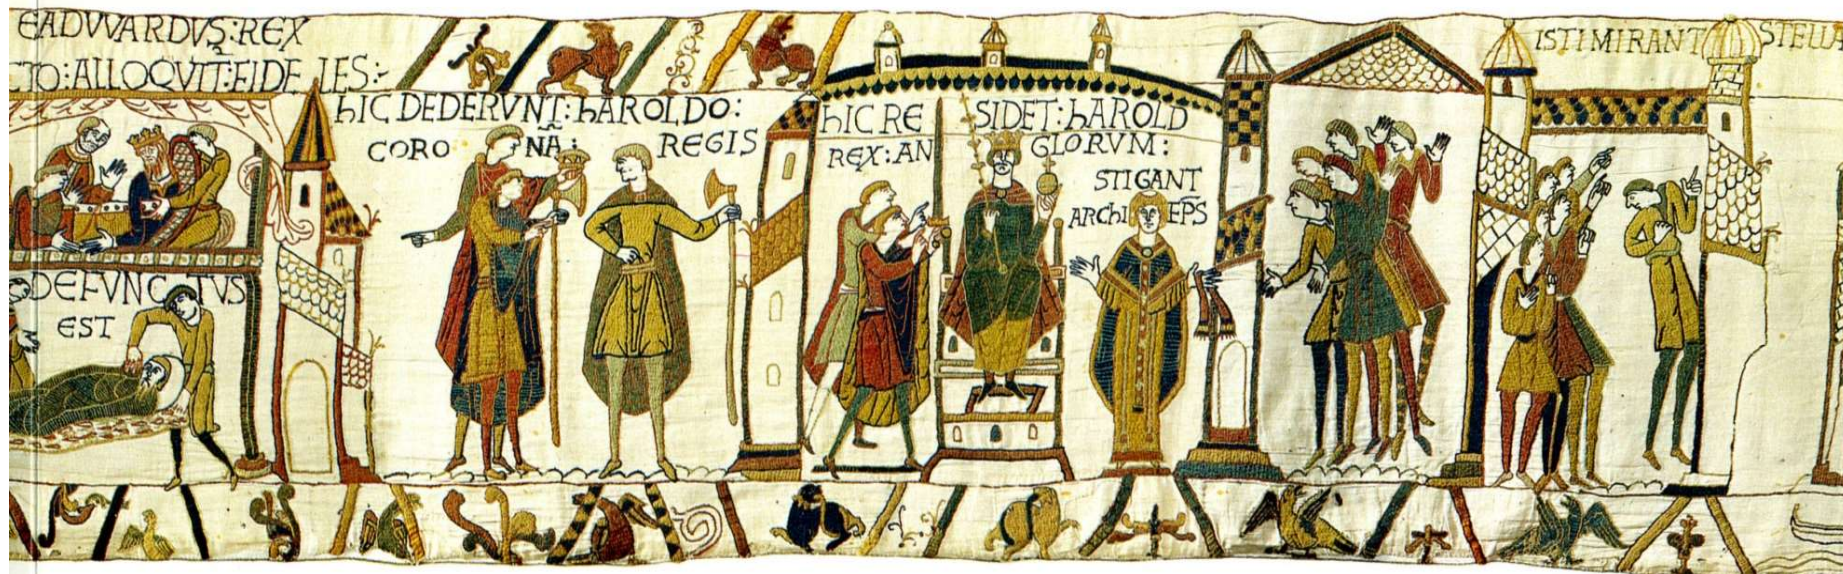 EADVVARDVS:REX
CTO:ALLOQVIT:FIDELES:-
DEFVNCTVS
EST
hIC DEDERVNT:hAROLDO:
CORONA: REGIS
hIC RESIDET:hAROLD
REX:ANGLORVM:
STIGANT
ARChIEPS
ISTI MIRANT STELLA